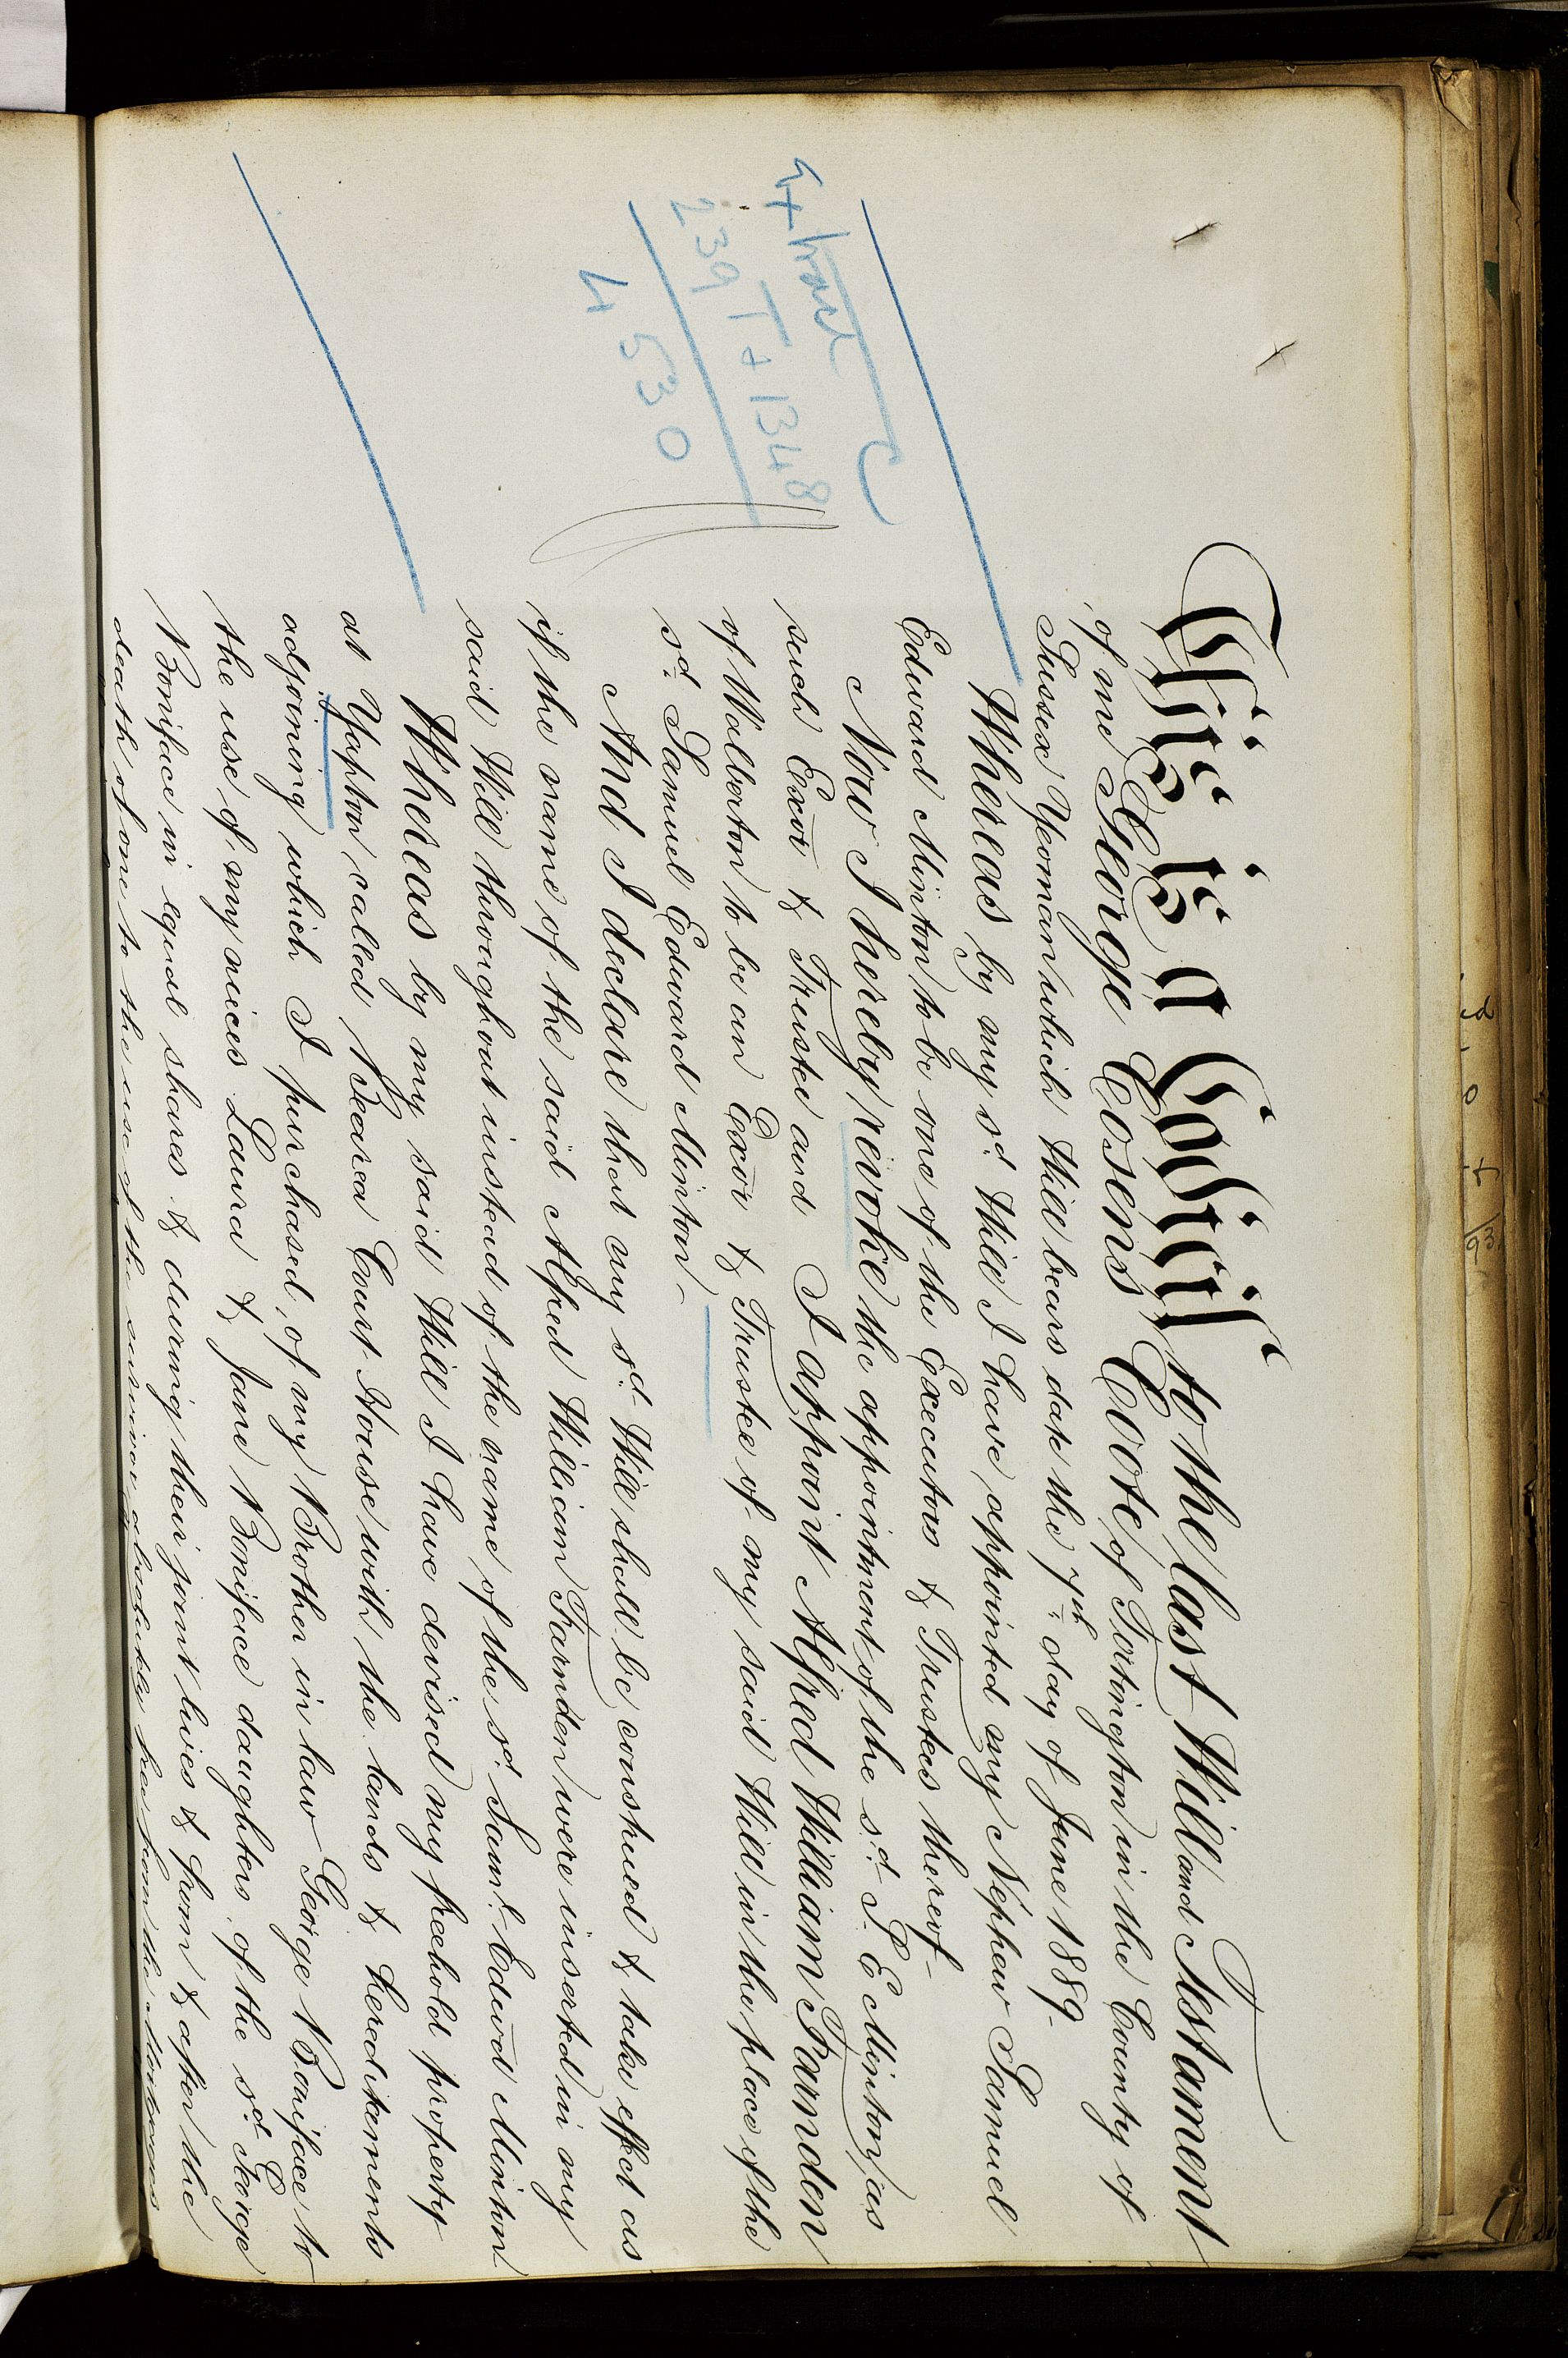 This is a Codicil to the last Will and Testament
of me George Cosens Coote of Tortington in the County of
Sussex Yeoman which Will bears date the 7th day of June 1889-
Whereas by my sd Will I have appointed my Nephew Samuel
Edward Minton to be one of the Executors & Trustees thereof-
Now I hereby revoke the appointment of the sd S. E Minton as
such Exor & Trustee and I appoint Alfred William Farnden
of Walberton to be an Exor & Trustee of my said Will in the place of the
sd Samuel Edward Minton-
And I declare that my sd Will shall be construed & take effect as
if the name of the said Alfred William Farnden were inserted in my
said Will throughout instead of the name of the sd Saml Edwd Minton
Whereas by my said Will I have devised my freehold property
at Yapton called Beara Court House with the lands & hereditaments
adjoining which I purchased of my Brother in law George Boniface to
the use of my nieces Laura & Jane Boniface daughters of the sd George
Boniface in equal shares & during their joint lives & from & after the
death of one to the use of the survivor absolutely free from the
Extract
239 T + 1348
4530
ed
0
93